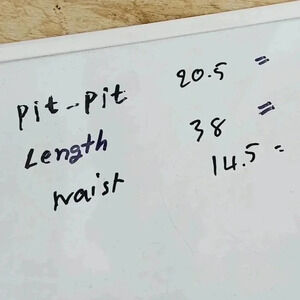 pit--pit 20.5 "
Length 38 "
waist 14.5 "